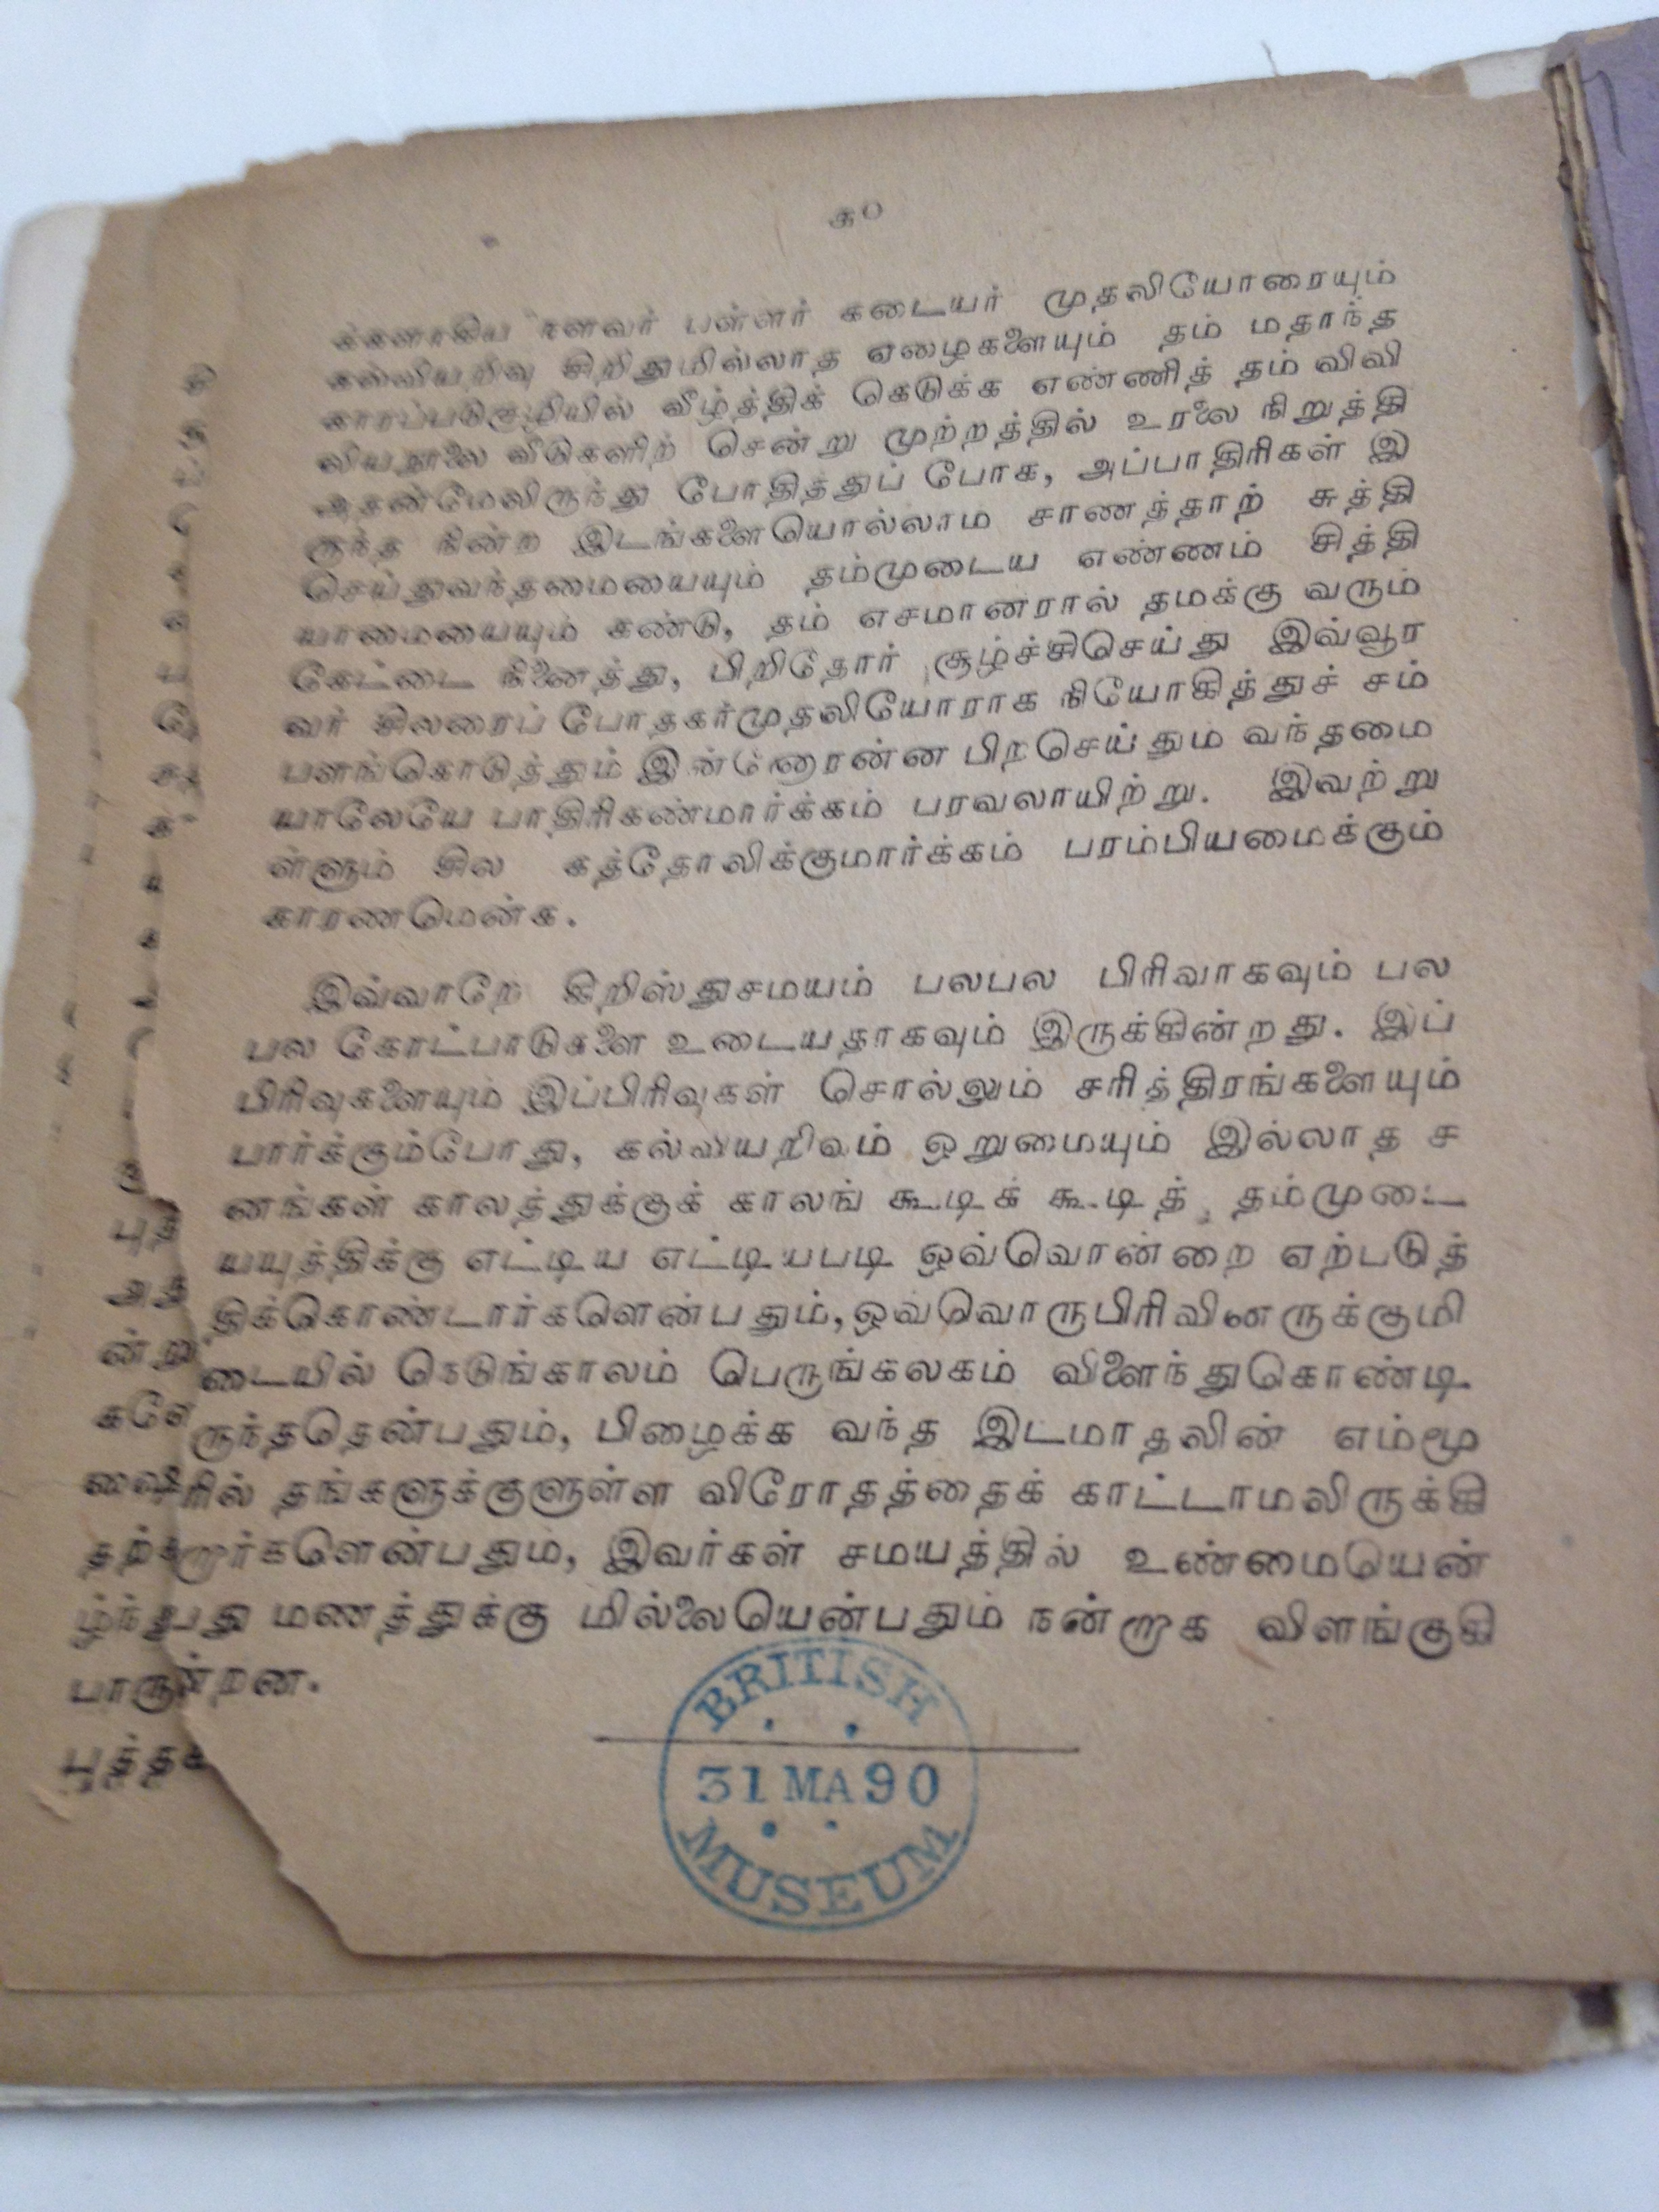 க௦
பள்ளர் கடையர் முதலியோரையும்
சிறிதுமில்லாத ஏழைகளையும் தம் மதாந்த
வீழ்த்திக் கெடுக்க எண்ணித் தம் விவி
வீடுகளிற் சென்று முற்றத்தில் உரலை நிறுத்தி
அதன்மேலிருந்து போதித்துப் போக, அப்பாதிரிகள் இ
ருந்த நின்ற இடங்களையொல்லாம் சாணத்தாற் சுத்தி
செய்துவந்தமையையும் தம்முடைய எண்ணம் சித்தி
யாமையையும் கண்டு, தம் எசமானரால் தமக்கு வரும்
கேட்டை நினைத்து, பிறிதோர் சூழ்ச்சிசெய்து இவ்வூர
வர் சிலரைப் போதகர்முதலியோராக நியோகித்துச் சம்
பளங்கொடுத்தும் வந்தமை
யாலேயே பாதிரிகண்மார்க்கம் பரவலாயிற்று. இவற்று
ள்ளும் சில கத்தோலிக்குமார்க்கம் பரம்பியமைக்கும்
காரணமென்க.
இவ்வாறே கிறிஸ்துசமயம் பலபல பிரிவாகவும் பல
பல கோட்பாடுகளை உடையதாகவும் இருக்கின்றது. இப்
பிரிவுகளையும் இப்பிரிவுகள் சொல்லும் சரித்திரங்களையும்
பார்க்கும்போது, கல்வியறிவும் ஒறுமையும் இல்லாத ச
னங்கள் காலத்துக்குக் காலங் கூடிக் கூடித் தம்முடை
யயுத்திக்கு எட்டிய எட்டியபடி ஒவ்வொன்றை ஏற்படுத்
திக்கொண்டார்களென்பதும், ஒவ்வொருபிரிவினருக்குமி
டையில் நெடுங்காலம் பெருங்கலகம் விளைந்துகொண்டி
ருந்ததென்பதும், பிழைக்க வந்த இடமாதலின் எம்மூ
ரில் தங்களுக்குளுள்ள விரோதத்தைக் காட்டாமலிருக்கி
றார்களென்பதும், இவர்கள் சமயத்தில் உண்மையென்
பது மணத்துக்கு மில்லையென்பதும் நன்றாக விளங்குகி
ன்றன.
BRITISH
31 MA 90
MUSEUM